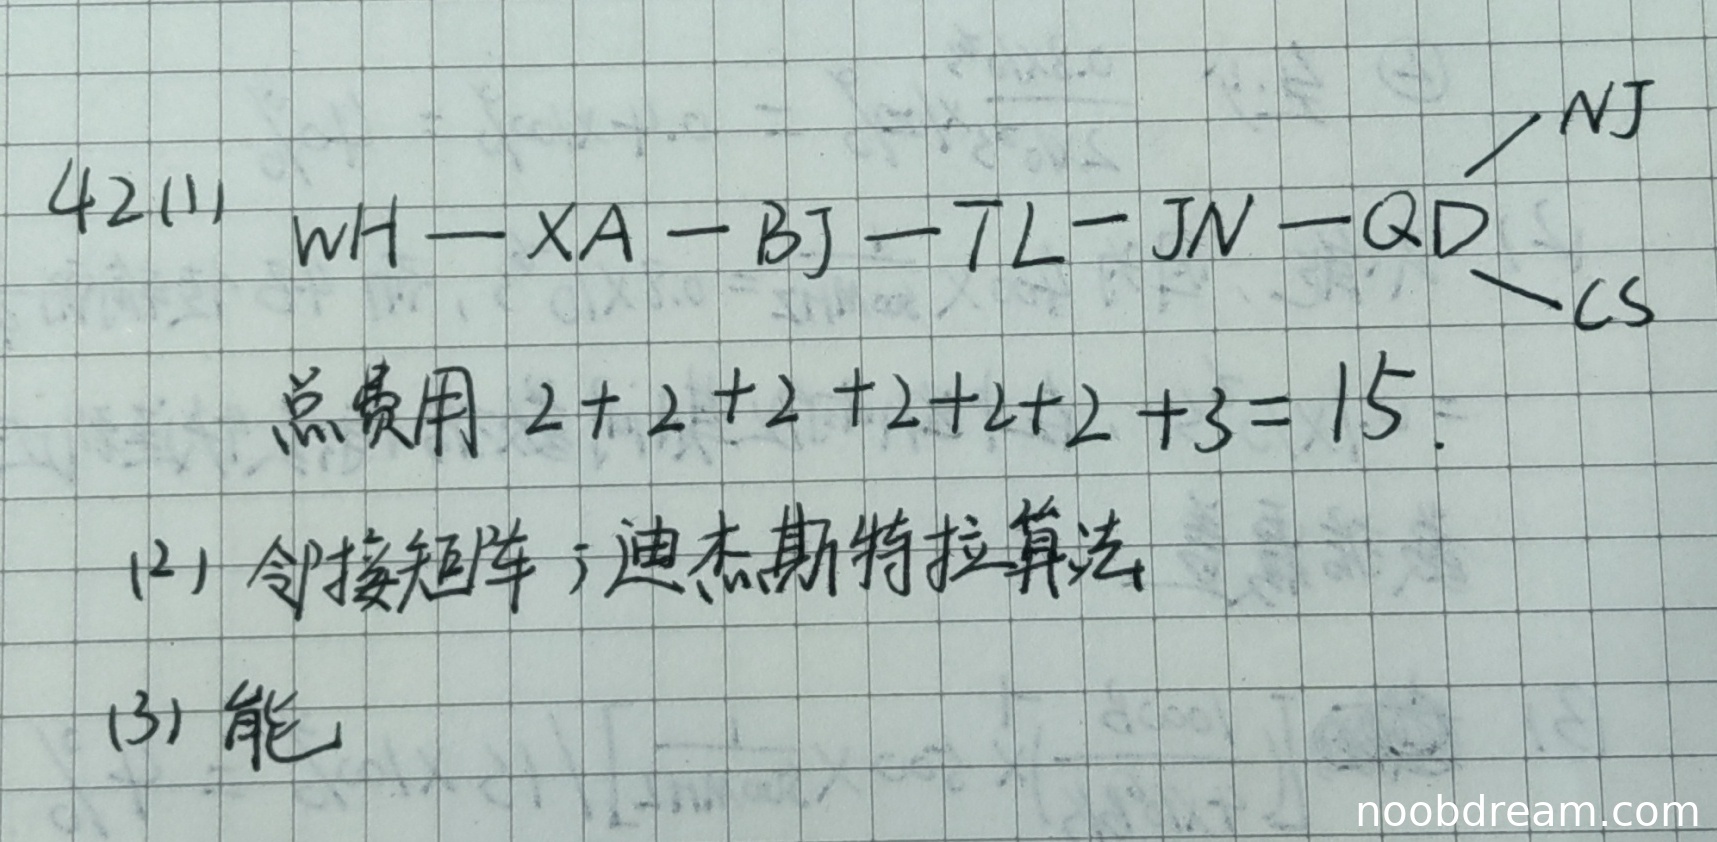 42(1) WH — XA — BJ — TL — JN — QD
NJ
CS
总费用 2+2+2+2+2+2+3=15.
(2) 邻接矩阵；迪杰斯特拉算法
(3) 能
noobdream.com